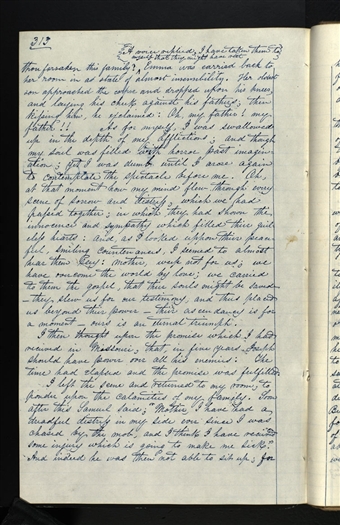 313
A voice replied, I have taken them to
myself that they might have rest
thou forsaken this family? Emma was carried back to
her room in a state of almost insensibility. Her oldest
son approached the corpse and dropped upon his knees,
and laying his cheek against his father's, then
kissing him, he exclaimed: Oh, my father! my
father!! As for myself, I was swallowed
up in the depth of my afflictions; and though
my soul was filled with horror past imagin-
ation; yet I was dumb until I arose again
to contemplate the spectacle before me. Oh,
at that moment how my mind flew through every
scene of sorrow and distress, which we had
passed together; in which they had shown the
innocence and sympathy which filled their guile-
less hearts: And, as I looked upon their peace-
ful, smiling countenances, I seemed to almost
hear them say: Mother, weep not for us; we
have overcome the world by love; we carried
to them the gospel, that their souls might be saved
—they slew us for our testimony, and thus placed
us beyond their power— their ascendancy is for
a moment— ours is an eternal triumph.
I then thought upon the promise which I had
received in Missouri; that, in five years, Joseph
should have power over all his enemies: The
time had elapsed and the promise was fulfilled
I left the scene and returned to my room, to
ponder upon the calamities of my family. Soon
after this Samuel said; "Mother, I have had a
dreadful distress in my side ever since I was
chased by the mob, and I think I have received
some injury which is going to make me sick."
And indeed he was then not able to sit up; for